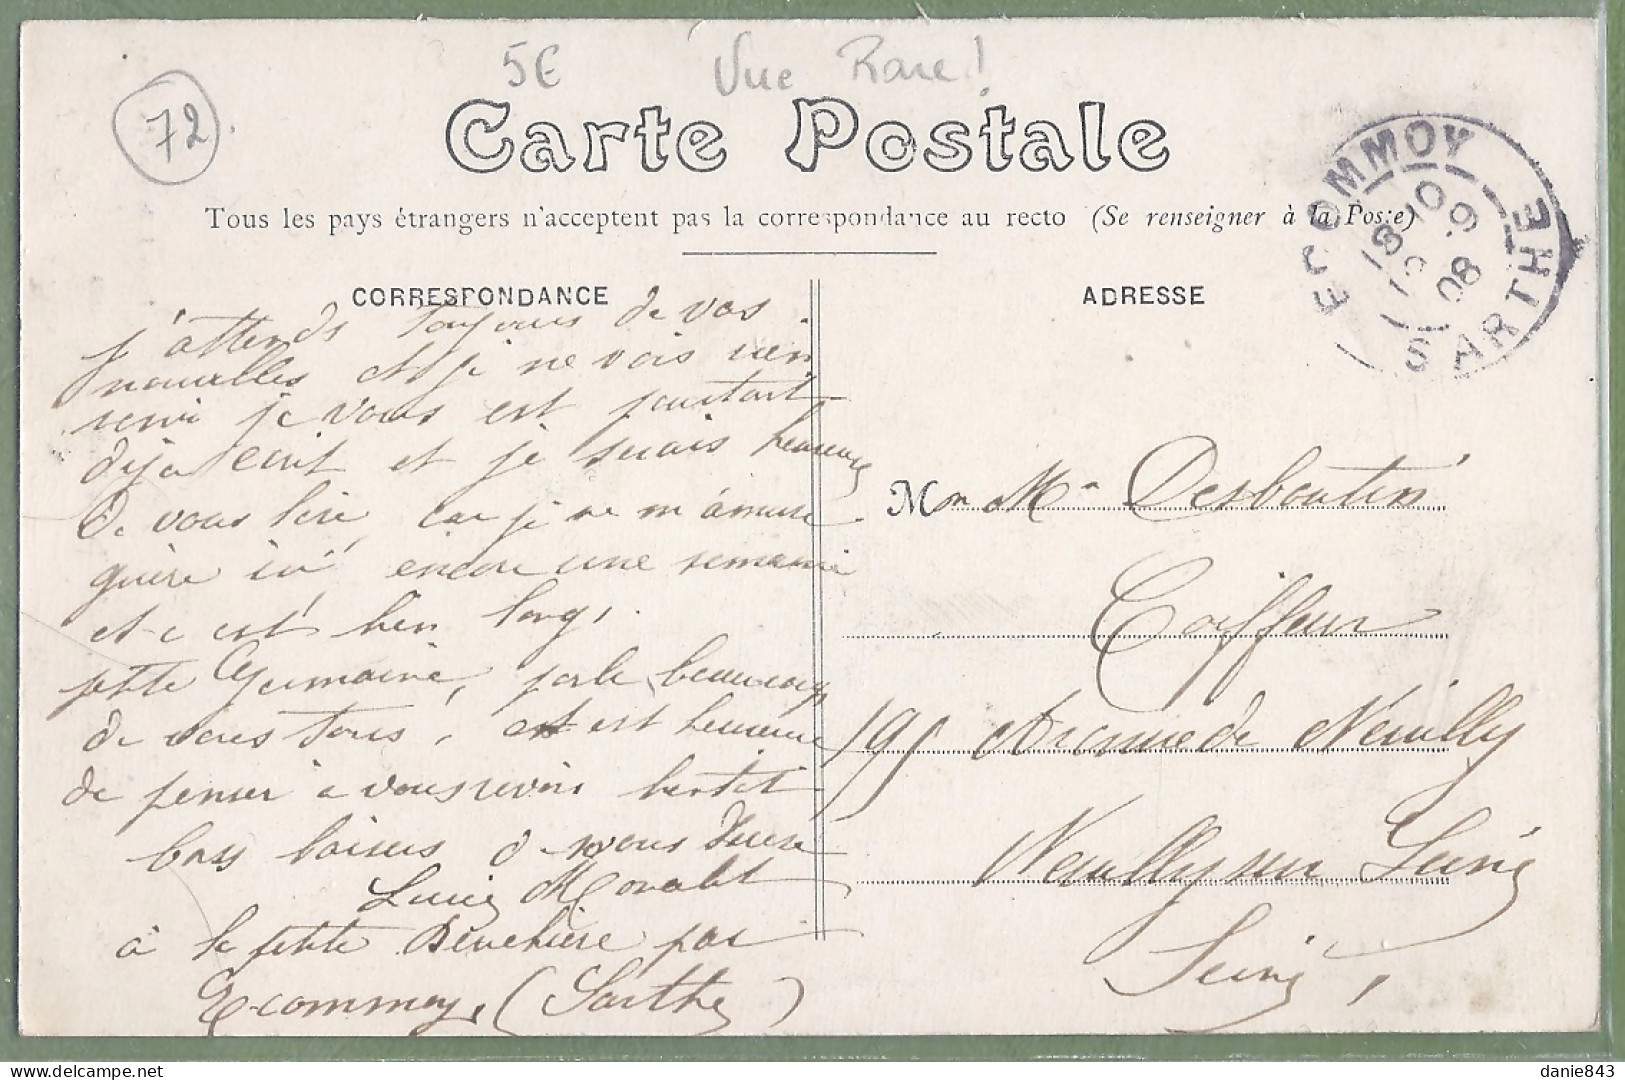 72
5€ Vue Rare!
Carte Postale
Tous les pays étrangers n'acceptent pas la correspondance au recto (Se renseigner à la Poste)
ECOMMOY
SARTHE
18 10
08
CORRESPONDANCE
j'attends toujours de vos
nouvelles et je ne vois rien
venir je vous est pourtant
deja ecrit et je serais heureuse
De vous lire, car je ne m'amuse
guère ici encore une semaine
et c'est bien long,
petite Germaine, parle beaucoup
de vous tous, et est heureuse
de penser a vous revoir bientot
bons baisers de vous
Lucie
à la petite par
Ecommoy, (Sarthe)
ADRESSE
M on Mr Desboutin
Coiffeur
191 Avenue de Neuilly
Neuilly sur Seine
Seine,
danie843